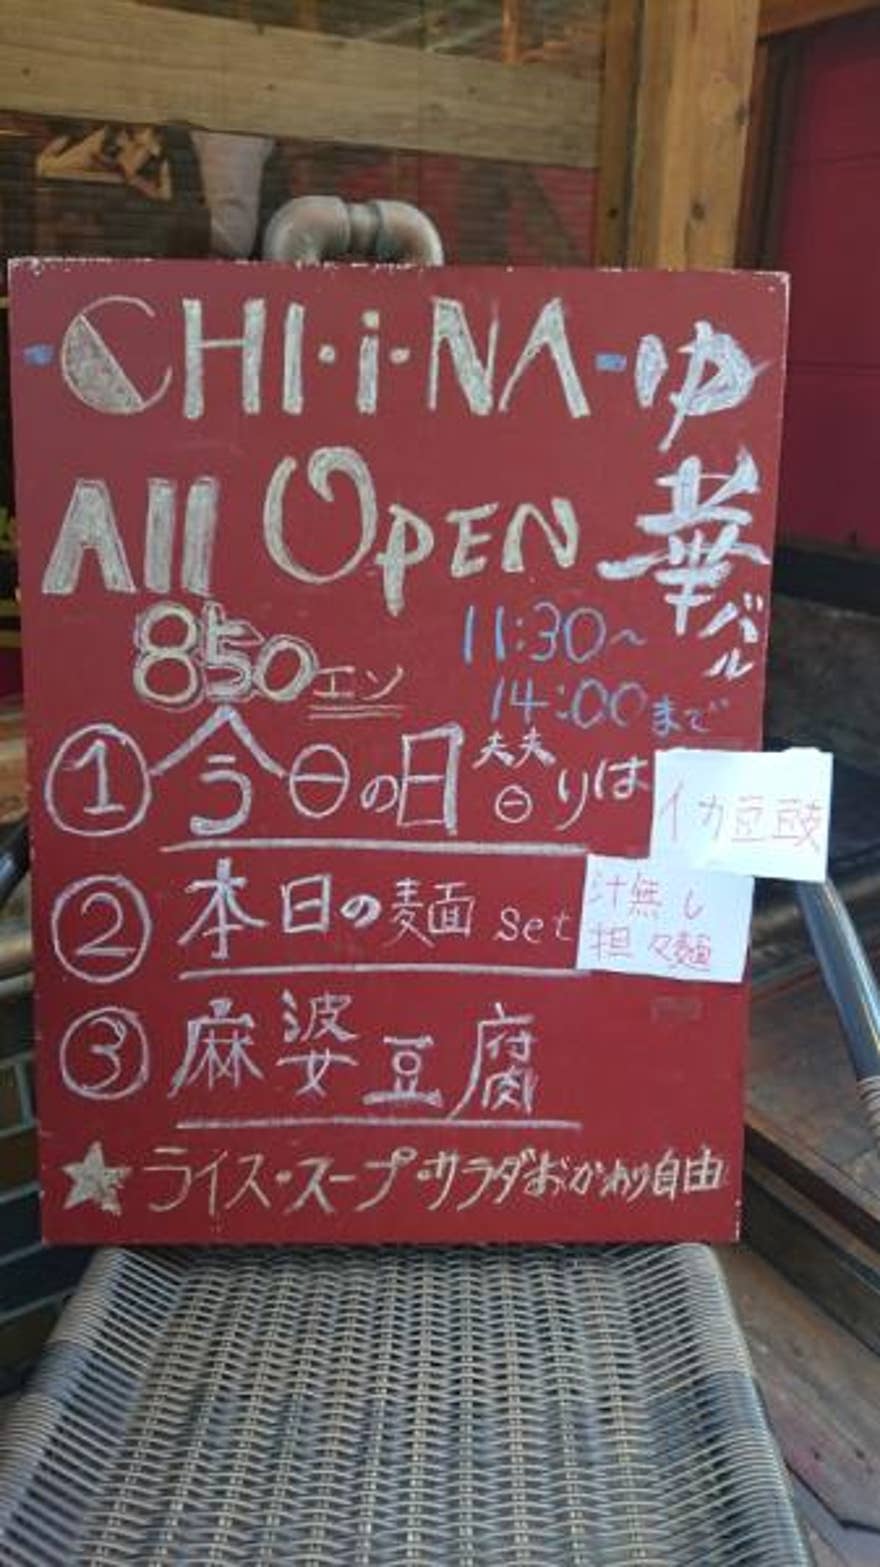 CHI・i・NA ゆ華バル
All OPEN
850エン
11:30〜
14:00まで
①今日の日替りは
イカ豆豉
②本日の麺 set
汁無し
担々麺
③麻婆豆腐
★ライス・スープ・サラダおかわり自由